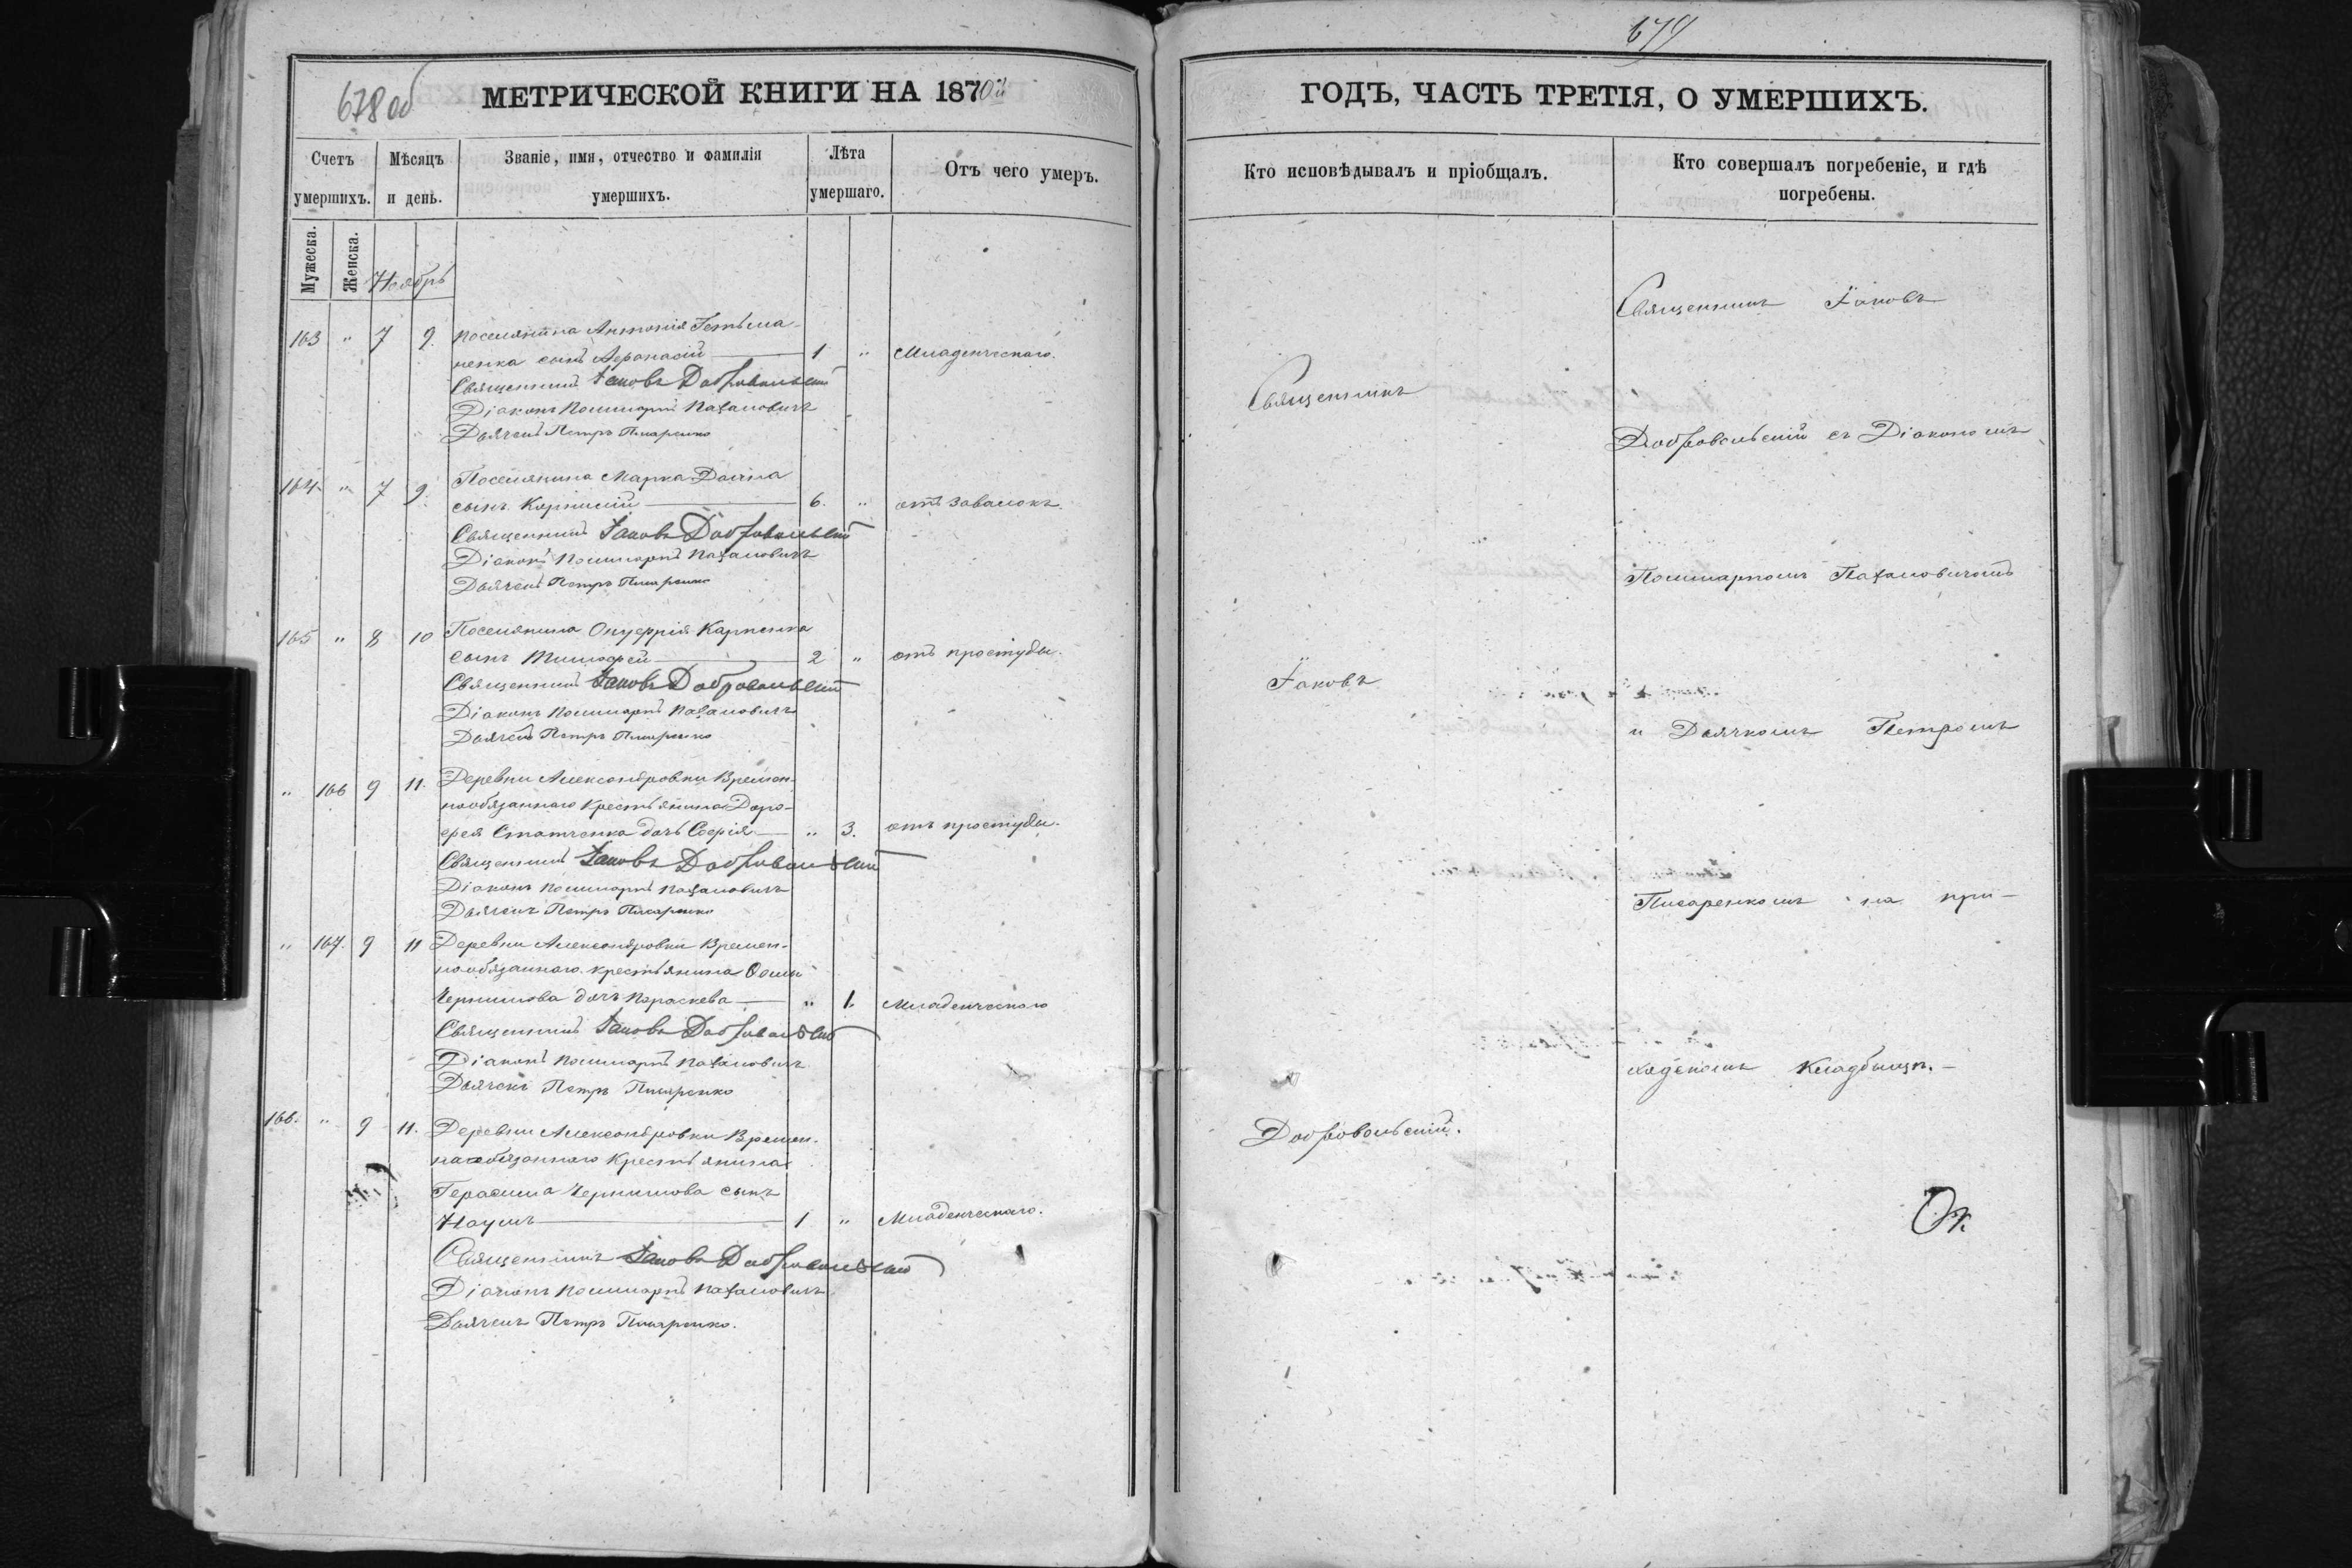 678 об
МЕТРИЧЕСКОЙ КНИГИ НА 1870й
Счетъ умершихъ.
Мѣсяцъ и день.
Званіе, имя, отчество и фамилія умершихъ.
Лѣта умершаго.
Отъ чего умеръ.
Мужеска.
Женска.
Ноябрь
163 " 7 9. Поселянина Антонія Гетьма-
ненка сынъ Афанасій — 1 " Младенческаго.
Священникъ Іаковъ Добровольскій
Діаконъ Поликарпъ
Дьячекъ Петръ Писаренко
164 " 7 9. Поселянина Марка
сынъ Корнилій — 6. " отъ завалокъ.
Священникъ Іаковъ Добровольскій
Діаконъ Поликарпъ
Дьячекъ Петръ Писаренко
165 " 8 10 Поселянина Онуфрія Карпенка
сынъ Тимофей — 2 " отъ простуды.
Священникъ Іаковъ Добровольскій
Діаконъ Поликарпъ
Дьячекъ Петръ Писаренко
" 166 9 11. Деревни Александровки Времен-
нообязаннаго Крестьянина Доро-
фея дочь Софія — " 3. отъ простуды.
Священникъ Іаковъ Добровольскій
Діаконъ Поликарпъ
Дьячекъ Петръ Писаренко
" 167. 9 11 Деревни Александровки Времен-
нообязаннаго крестьянина
дочь Параскева — " 1. Младенческаго
Священникъ Іаковъ Добровольскій
Діаконъ Поликарпъ
Дьячекъ Петръ Писаренко
166. " 9 11. Деревни Александровки Времен-
нообязаннаго Крестьянина
Герасима сынъ
Наумъ — 1 " Младенческаго.
Священникъ Іаковъ Добровольскій
Діаконъ Поликарпъ
Дьячекъ Петръ Писаренко.
679
ГОДЪ, ЧАСТЬ ТРЕТІЯ, О УМЕРШИХЪ.
Кто исповѣдывалъ и пріобщалъ.
Кто совершалъ погребеніе, и гдѣ погребены.
Священникъ
Іаковъ
Добровольскій.
Священникъ Іаковъ
Добровольскій съ Діакономъ
Поликарпомъ
и Дьячкомъ Петромъ
Писаренкомъ на при-
ходскомъ кладбищѣ.